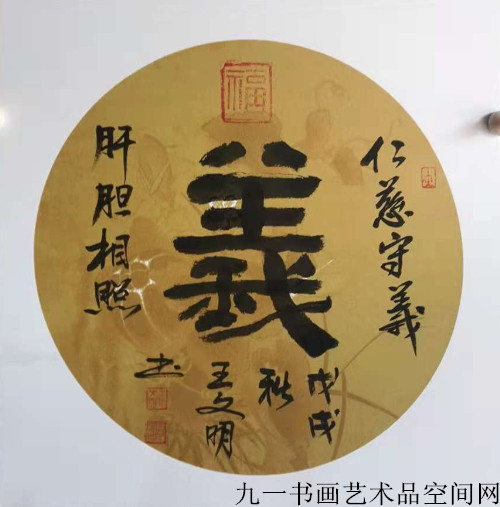 福
仁慈守義
義
肝胆相照
戊戌
秋
王文明
书
九一书画艺术品空间网